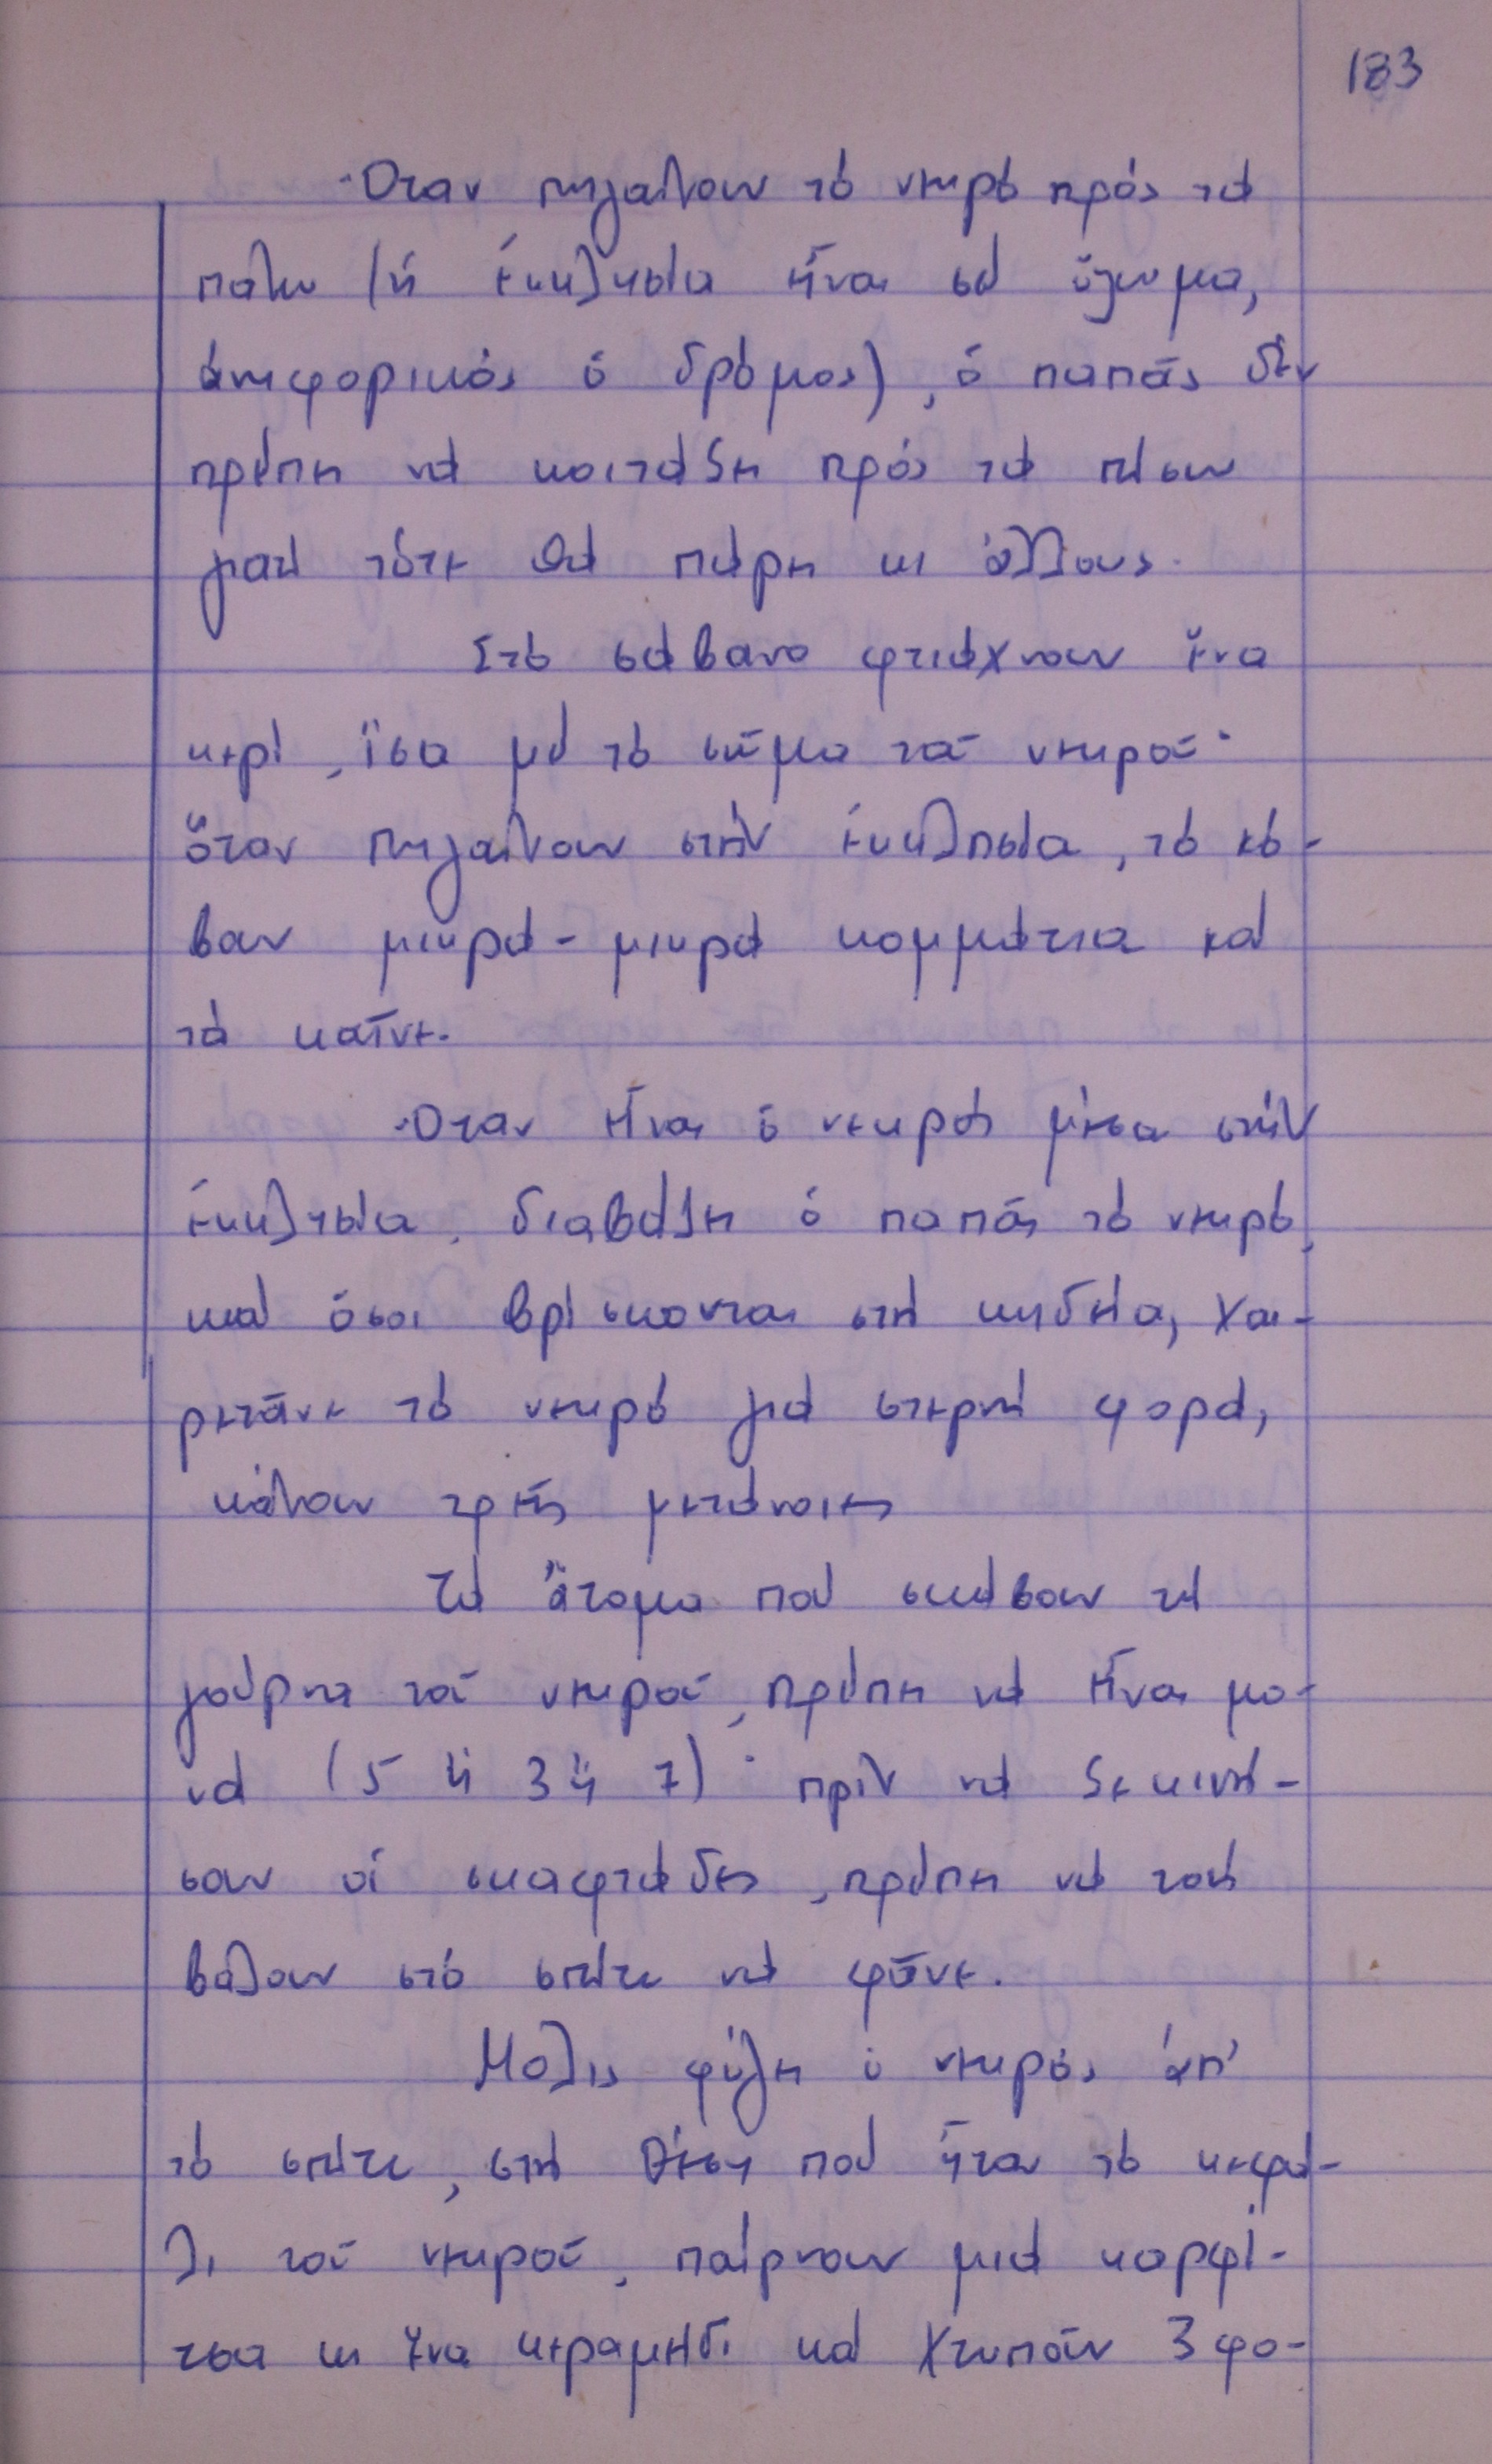 183
Ὅταν πηγαίνουν τό νεκρό πρός τά
πάνω (ἡ ἐκκλησία εἶναι σέ ὕψωμα,
ἀνηφορικός ὁ δρόμος), ὁ παπάς δέν
πρέπει νά κοιτάξη πρός τά πίσω
γιατί τότε θά πάρη κι ἄλλους.
Στό σάβανο φτιάχνουν ἕνα
κερί, ἴσα μέ τό σῶμα τοῦ νεκροῦ·
ὅταν πηγαίνουν στήν ἐκκλησία, τό κό-
βουν μικρά-μικρά κομμάτια καί
τά καῖνε.
Ὅταν εἶναι ὁ νεκρός μέσα στήν
ἐκκλησία, διαβάζει ὁ παπάς τό νεκρό,
καί ὅσοι βρίσκονται στή κηδεία, χαι-
ρετᾶνε τό νεκρό γιά στερνή φορά,
κάνουν τρεῖς μετάνοιες
Τά ἄτομα πού σκάβουν τή
γούρνα τοῦ νεκροῦ, πρέπει νά εἶναι μο-
νά (5 ἤ 3 ἤ 7)· πρίν νά ξεκινή-
σουν οἱ σκαφτιάδες, πρέπει νά τούς
βάλουν στό σπίτι νά φᾶνε.
Μόλις φύγη ὁ νεκρός ἀπ'
τό σπίτι, στή θέση πού ἦταν τό κεφά-
λι τοῦ νεκροῦ, παίρνουν μιά καρφί-
τσα κι ἕνα κεραμίδι καί χτυπᾶν 3 φο-